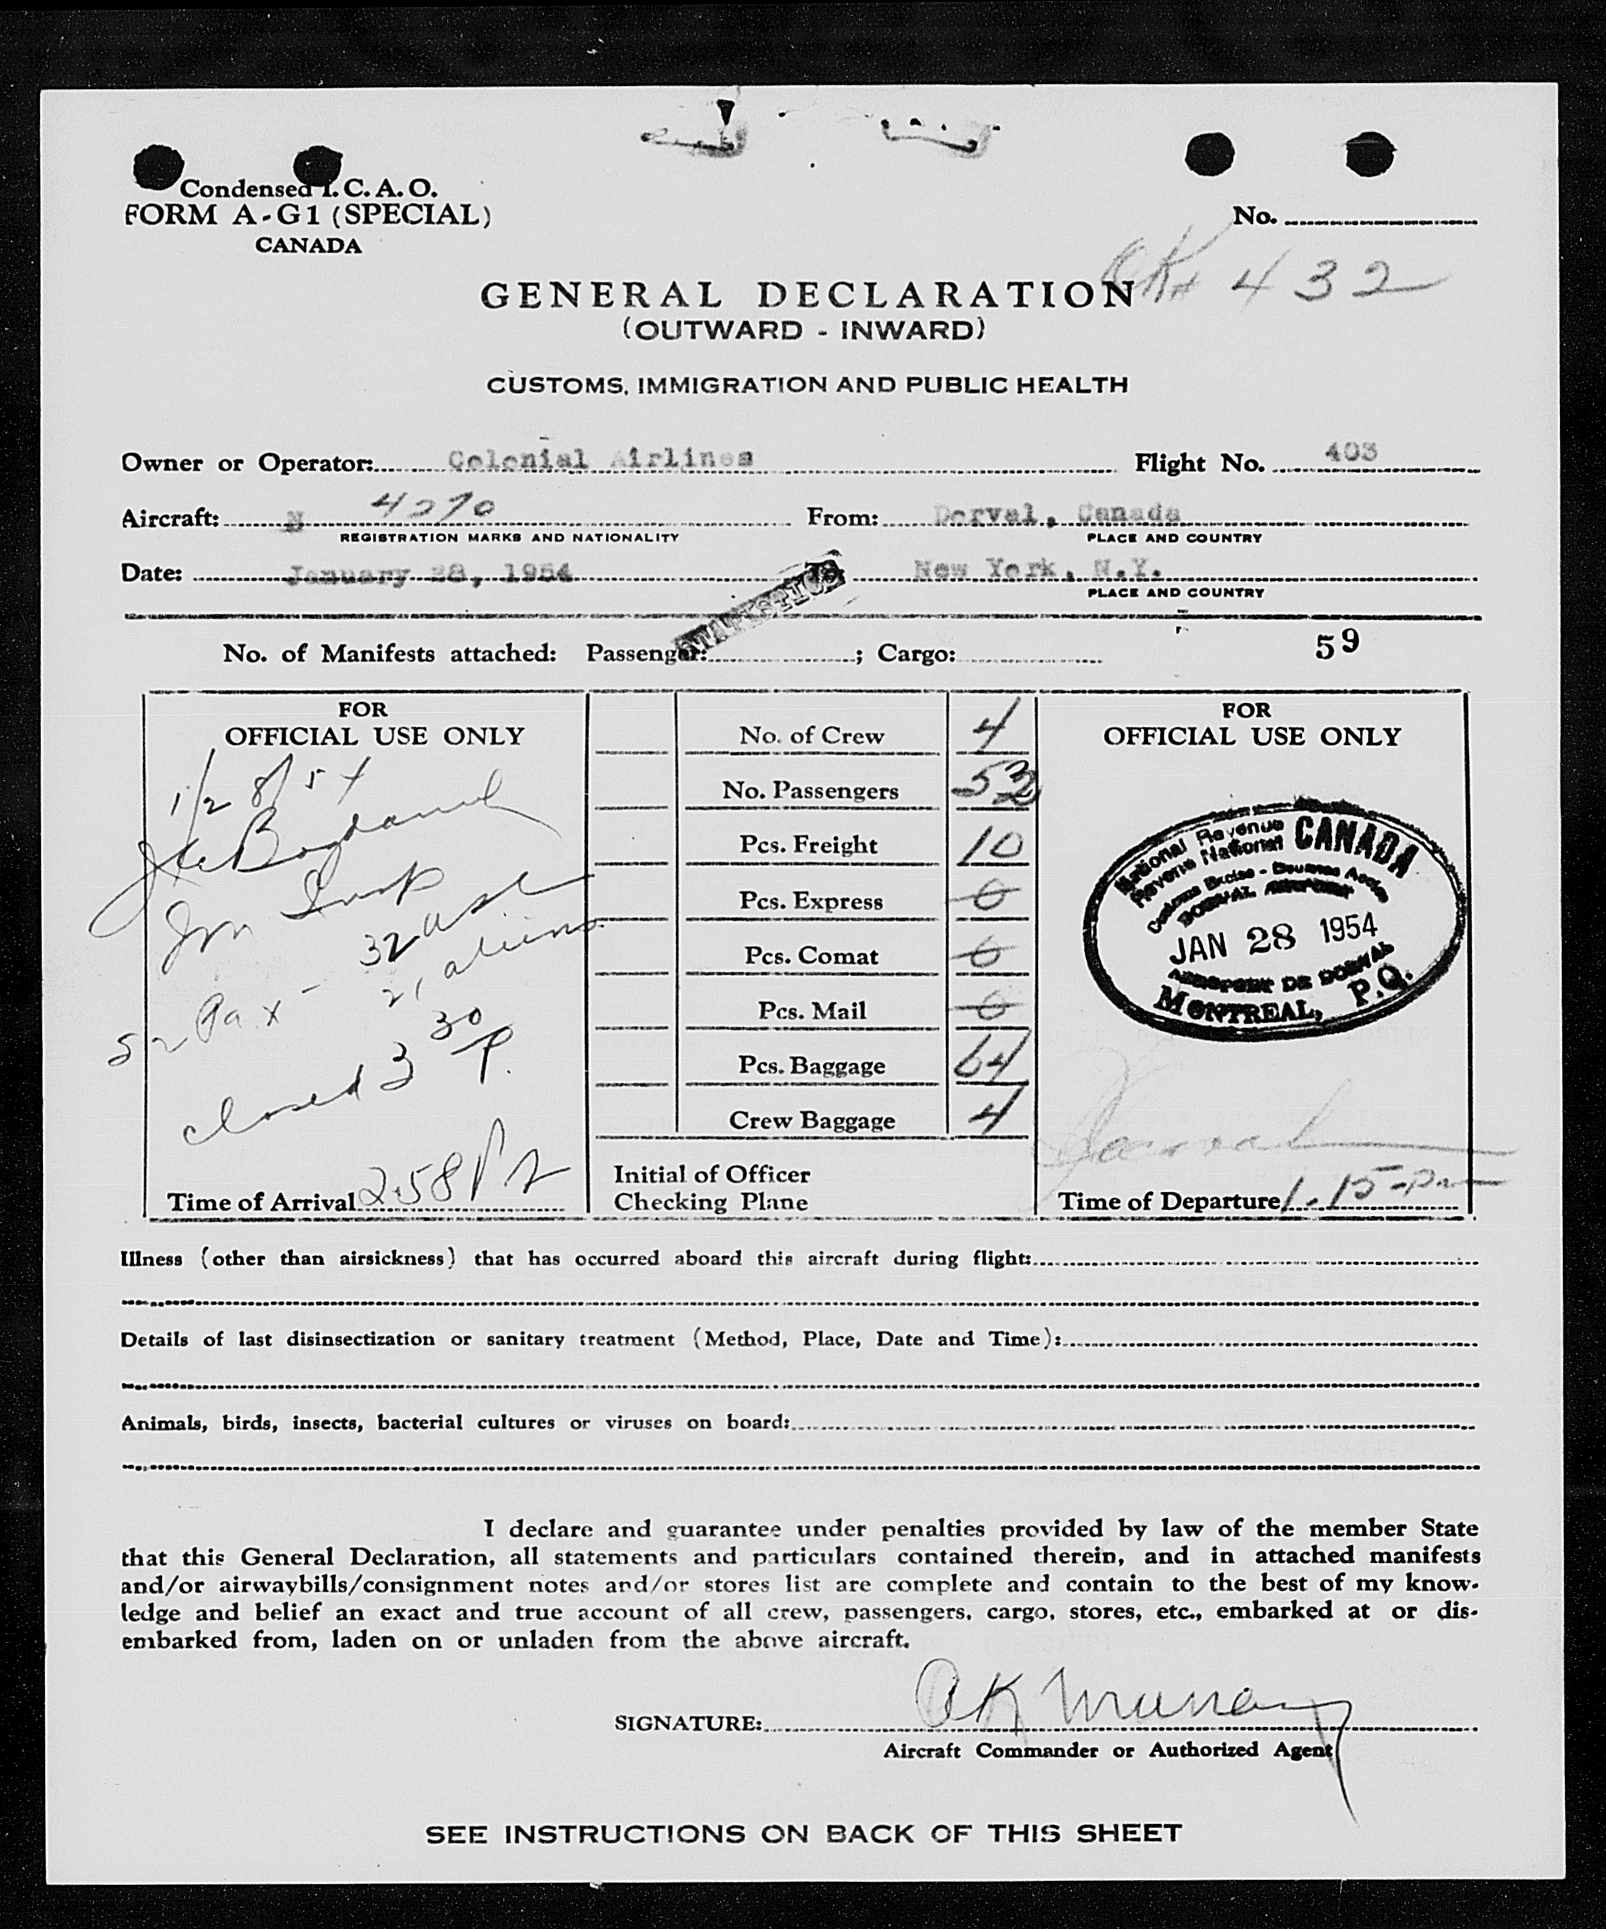 Condensed I. C. A. O.
FORM A-G1 (SPECIAL)
CANADA
No.
432
GENERAL DECLARATION
(OUTWARD - INWARD)
CUSTOMS, IMMIGRATION AND PUBLIC HEALTH
Owner or Operator: Colonial Airlines Flight No. 403
Aircraft: N 4270 From: Dorval, Canada
REGISTRATION MARKS AND NATIONALITY PLACE AND COUNTRY
Date: January 28, 1954 To: New York, N.Y.
PLACE AND COUNTRY
STATISTICS
No. of Manifests attached: Passenger: ; Cargo: 59
FOR
OFFICIAL USE ONLY
1/28/54
Jm Insp
32 USC
21 aliens
52 Pax -
closed 3 30 P.
Time of Arrival 2:58 P
No. of Crew 4
No. Passengers 52
Pcs. Freight 10
Pcs. Express 0
Pcs. Comat 0
Pcs. Mail 0
Pcs. Baggage 64
Crew Baggage 4
Initial of Officer
Checking Plane
FOR
OFFICIAL USE ONLY
National Revenue CANADA
Revenu National
Customs Excise - Douanes Accise
DORVAL AIRPORT
JAN 28 1954
AEROPORT DE DORVAL
MONTREAL, P.Q.
Time of Departure 1.15 Pm
Illness (other than airsickness) that has occurred aboard this aircraft during flight:
Details of last disinsectization or sanitary treatment (Method, Place, Date and Time):
Animals, birds, insects, bacterial cultures or viruses on board:
I declare and guarantee under penalties provided by law of the member State
that this General Declaration, all statements and particulars contained therein, and in attached manifests
and/or airwaybills/consignment notes and/or stores list are complete and contain to the best of my know-
ledge and belief an exact and true account of all crew, passengers, cargo, stores, etc., embarked at or dis-
embarked from, laden on or unladen from the above aircraft.
SIGNATURE: AK Murray
Aircraft Commander or Authorized Agent
SEE INSTRUCTIONS ON BACK OF THIS SHEET